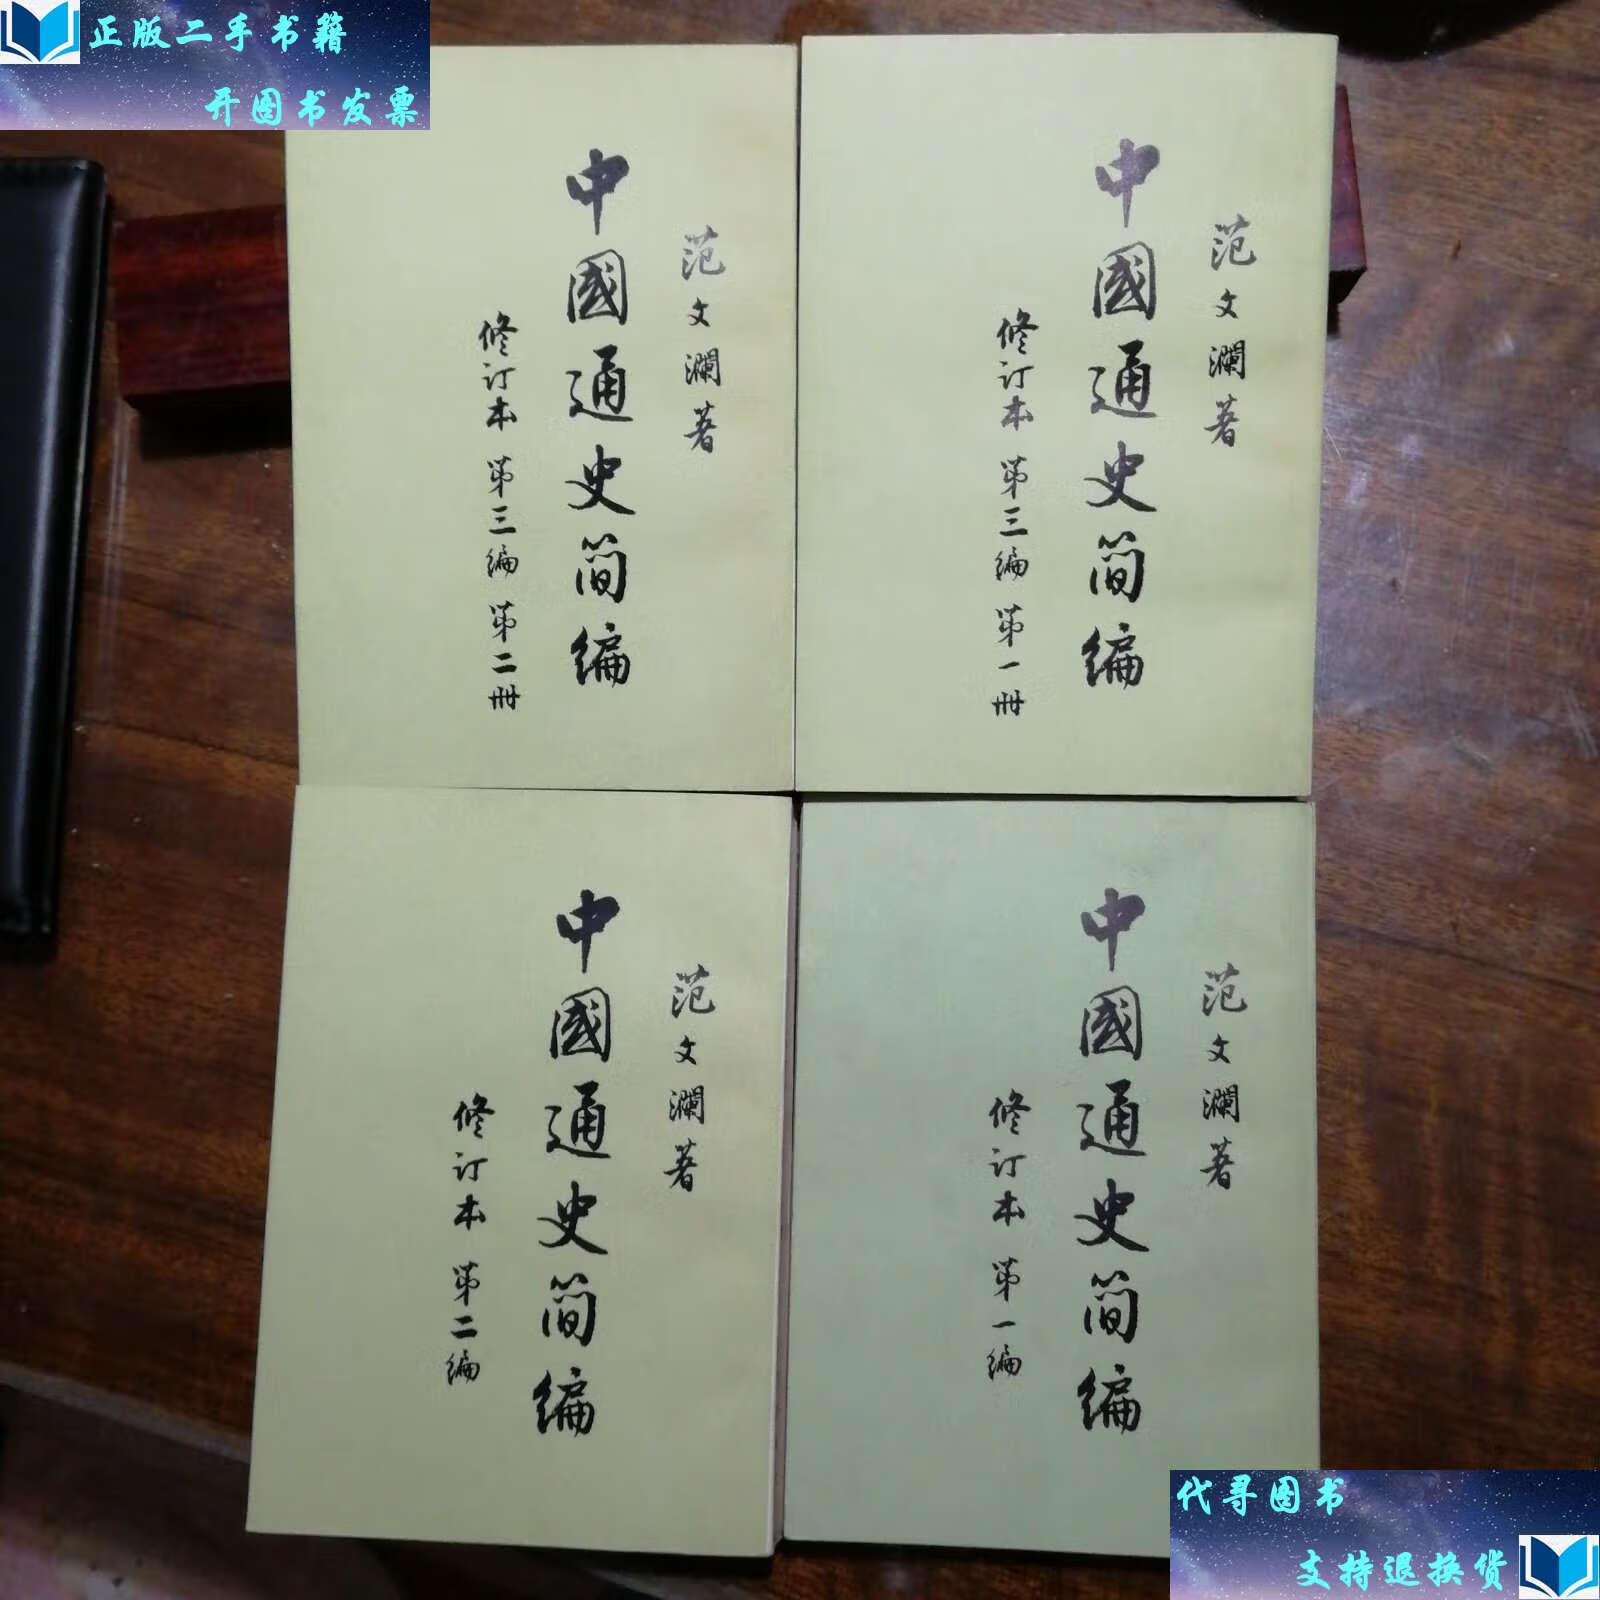 正版二手书籍
开图书发票
范文澜著
中國通史简编
修订本 第三编 第二册
范文澜著
中國通史简编
修订本 第三编 第一册
范文澜著
中國通史简编
修订本 第二编
范文澜著
中國通史简编
修订本 第一编
代寻图书
支持退换货